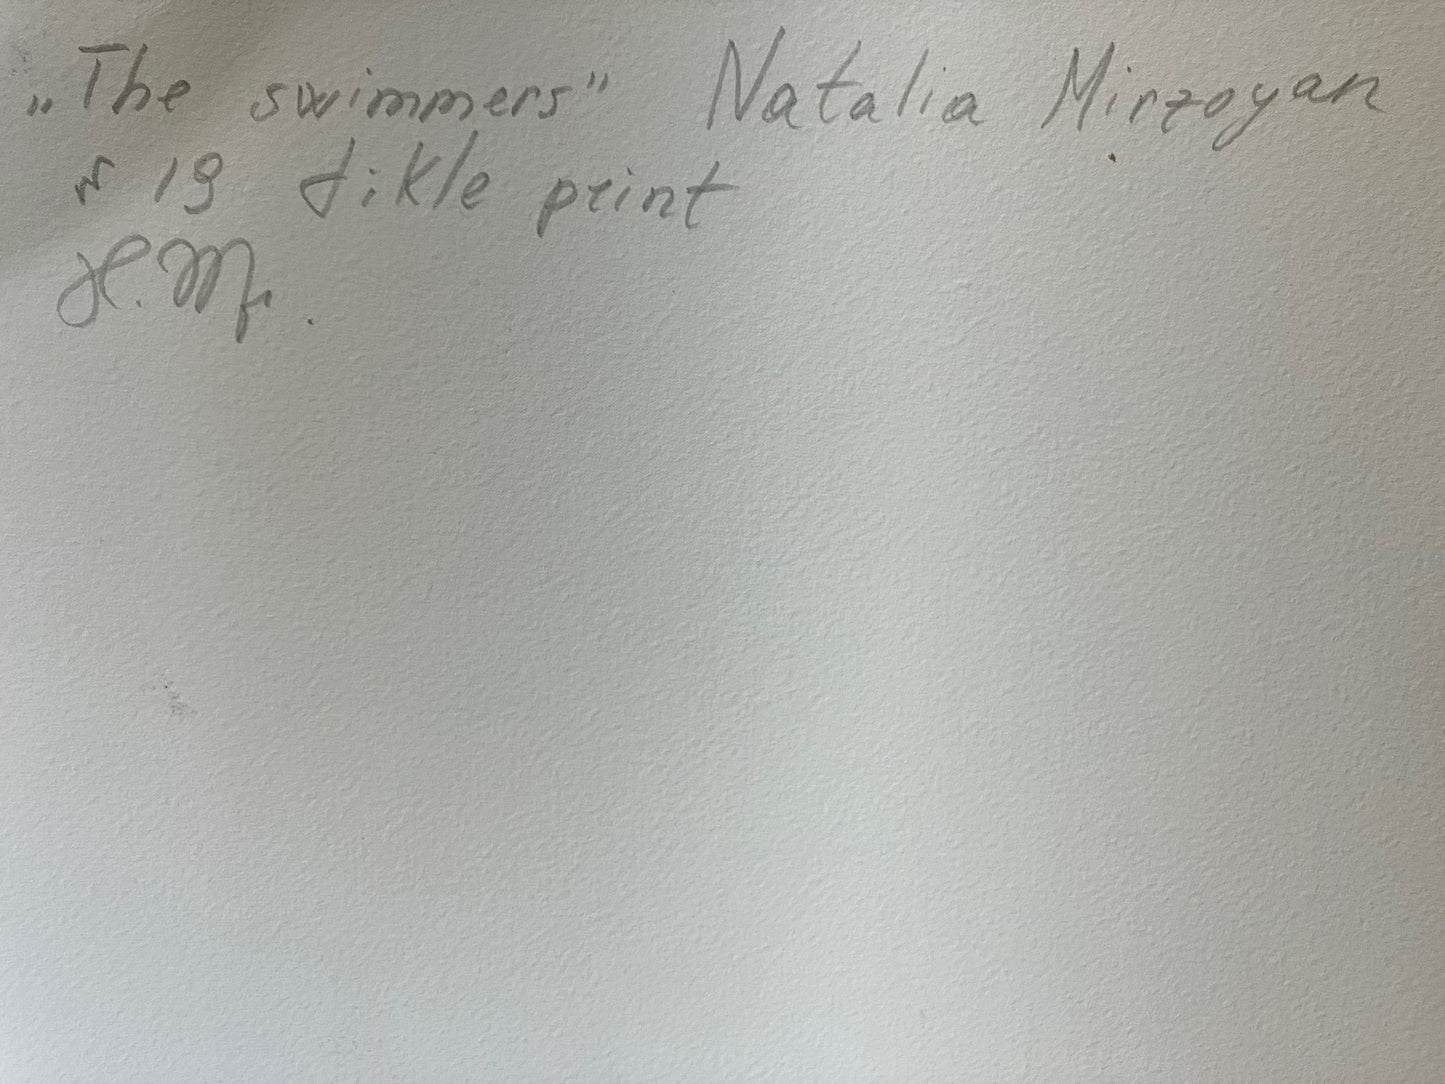 „The swimmers" Natalia Mirzoyan
N 19 jikle print